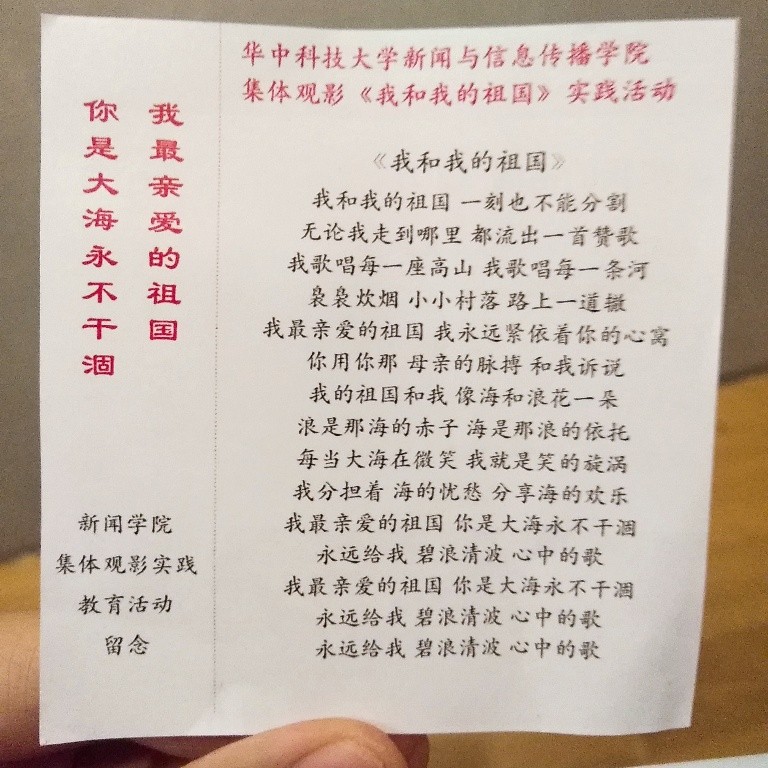 我最亲爱的祖国
你是大海永不干涸
新闻学院
集体观影实践
教育活动
留念
华中科技大学新闻与信息传播学院
集体观影《我和我的祖国》实践活动
《我和我的祖国》
我和我的祖国 一刻也不能分割
无论我走到哪里 都流出一首赞歌
我歌唱每一座高山 我歌唱每一条河
袅袅炊烟 小小村落 路上一道辙
我最亲爱的祖国 我永远紧依着你的心窝
你用你那 母亲的脉搏 和我诉说
我的祖国和我 像海和浪花一朵
浪是那海的赤子 海是那浪的依托
每当大海在微笑 我就是笑的旋涡
我分担着 海的忧愁 分享海的欢乐
我最亲爱的祖国 你是大海永不干涸
永远给我 碧浪清波 心中的歌
我最亲爱的祖国 你是大海永不干涸
永远给我 碧浪清波 心中的歌
永远给我 碧浪清波 心中的歌